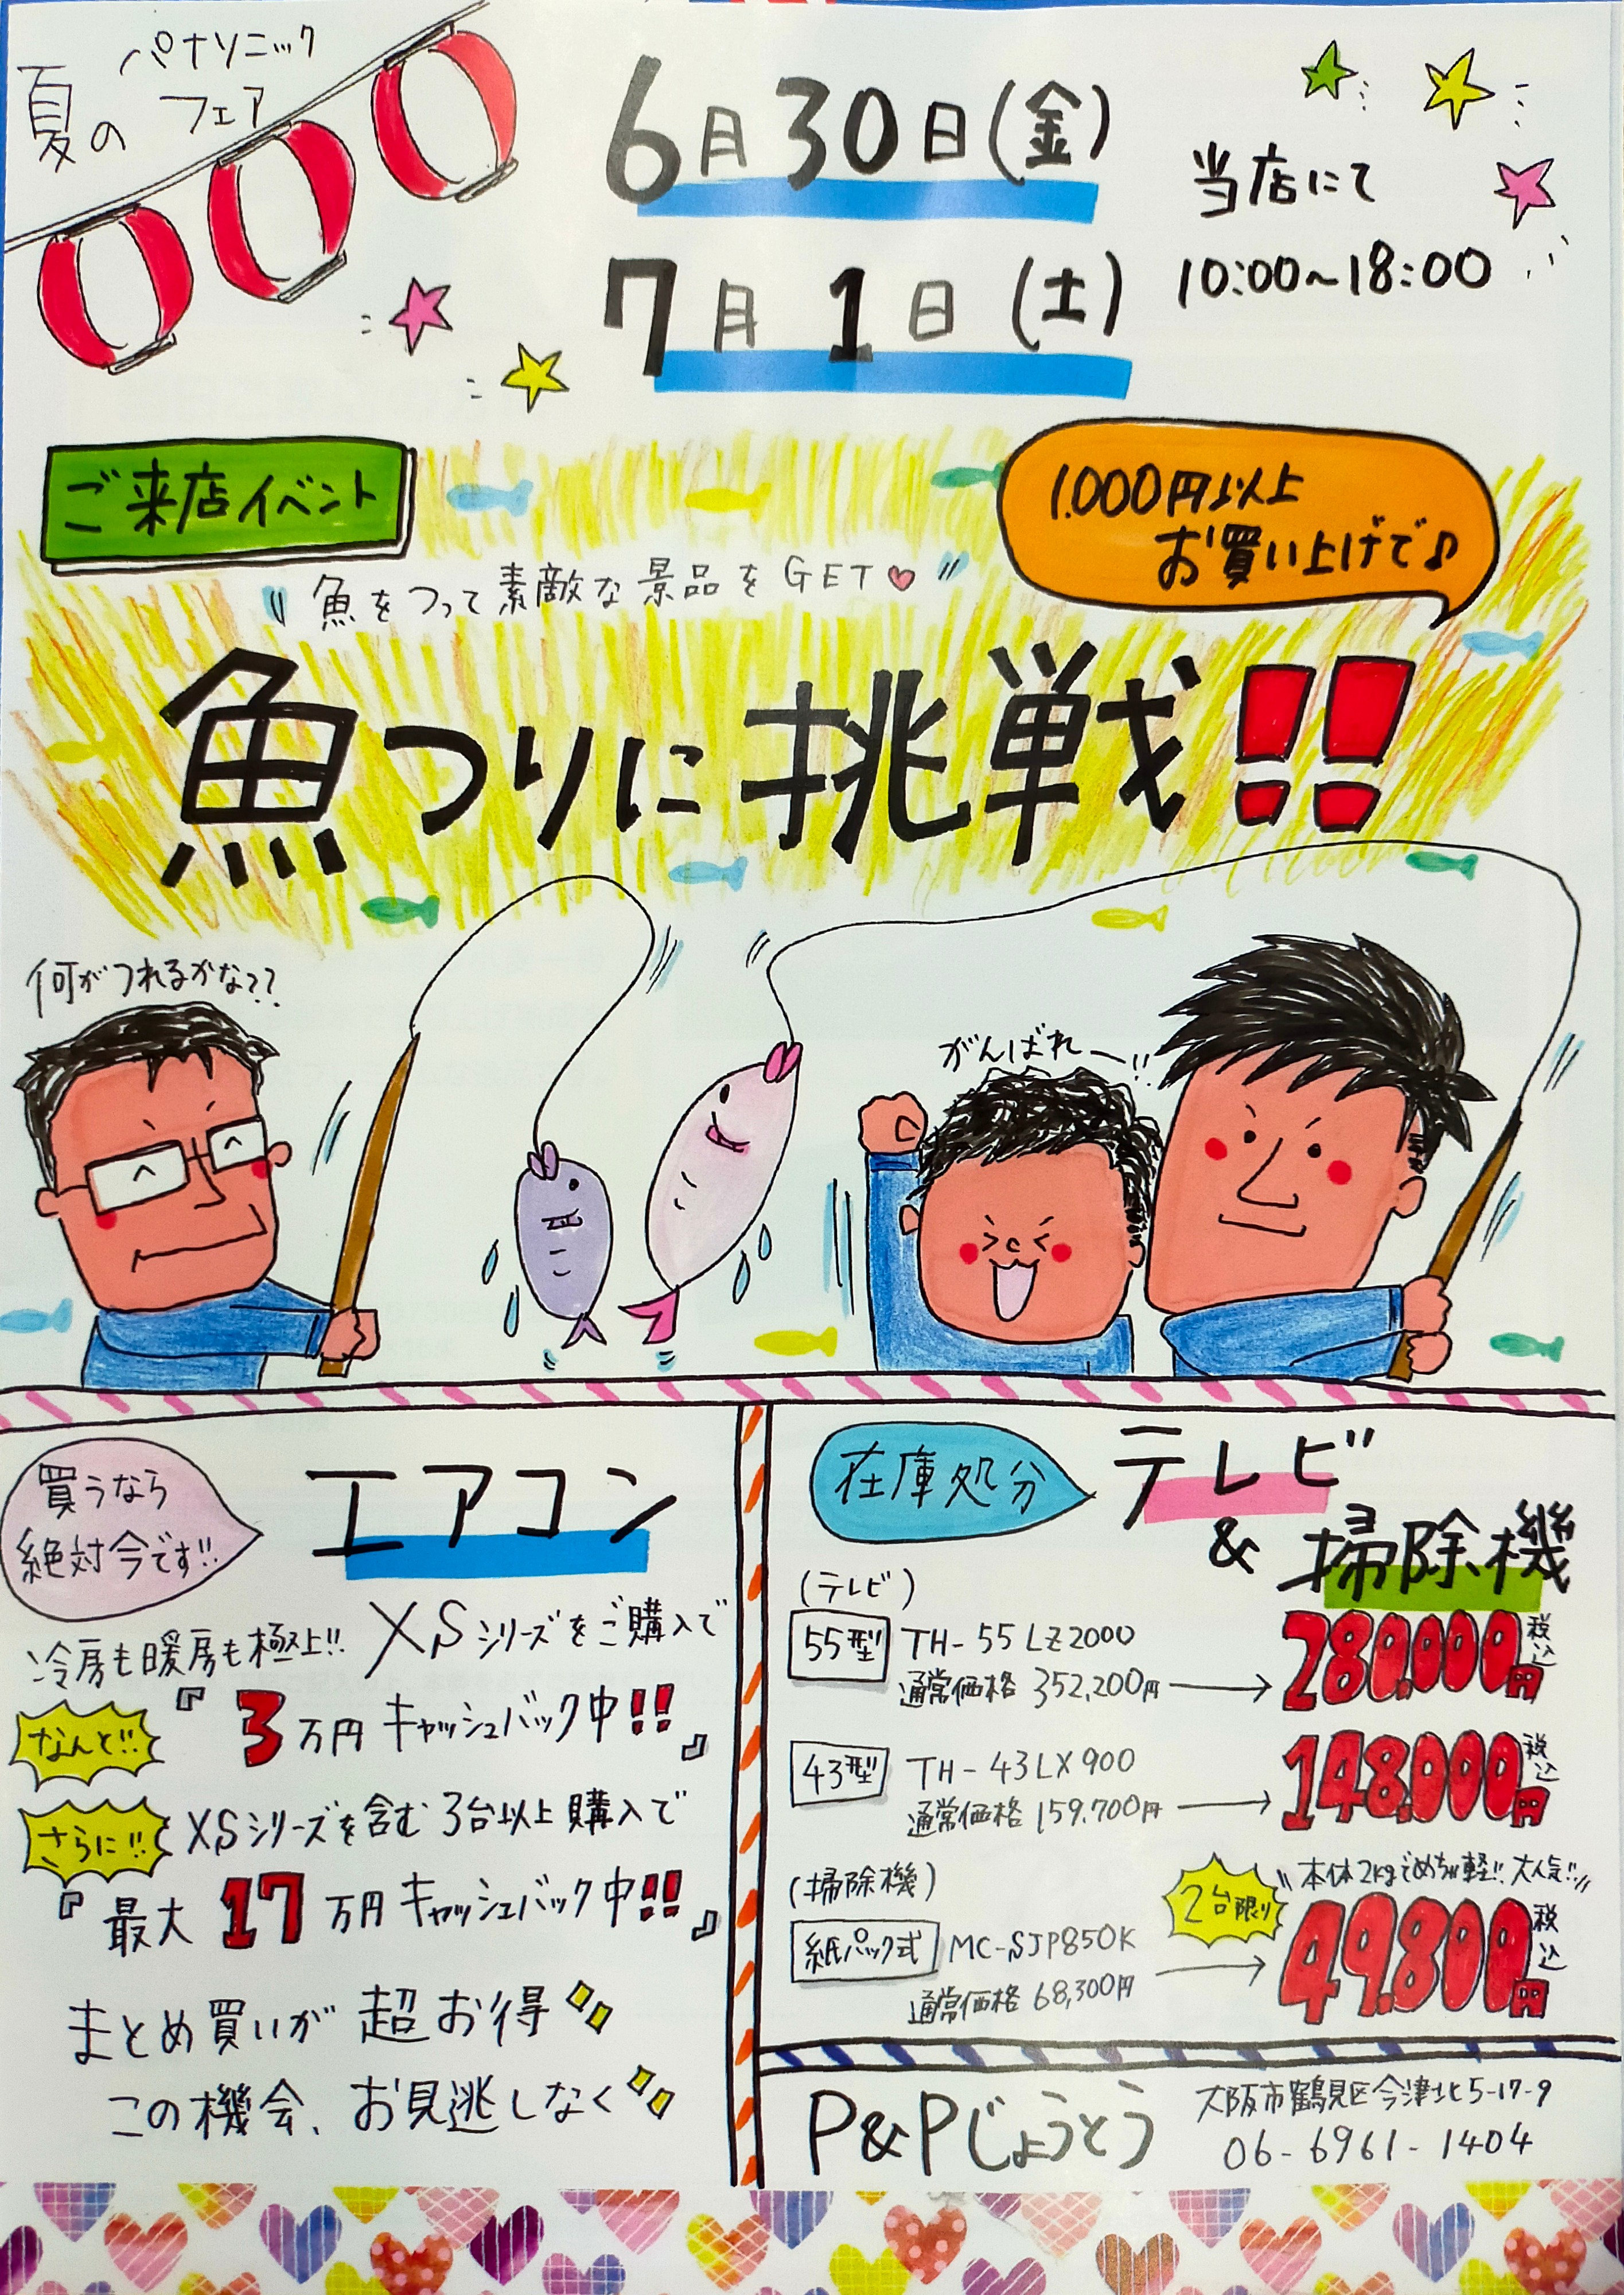 夏の
パナソニック
フェア
6月30日(金)
7月1日(土)
当店にて
10:00~18:00
ご来店イベント
1.000円以上
お買い上げで♪
魚をつって素敵な景品をGET♡
魚つりに挑戦!!
何がつれるかな??
がんばれー!!
買うなら
絶対今です!!
エアコン
冷房も暖房も極上!! XSシリーズをご購入で
なんと!!
『3万円キャッシュバック中!!』
さらに!!
XSシリーズを含む3台以上購入で
『最大17万円キャッシュバック中!!』
まとめ買いが超お得
この機会、お見逃しなく
在庫処分
テレビ
&掃除機
(テレビ)
55型 TH-55LZ2000
通常価格352,200円→280.000円税込
43型 TH-43LX900
通常価格159.700円→148.000円税込
(掃除機)
2台限り
本体2kgでめちゃ軽!!大人気!!
紙パック式 MC-SJP850K
通常価格68,300円→49.800円税込
P&Pじょうとう
大阪市鶴見区今津北5-17-9
06-6961-1404